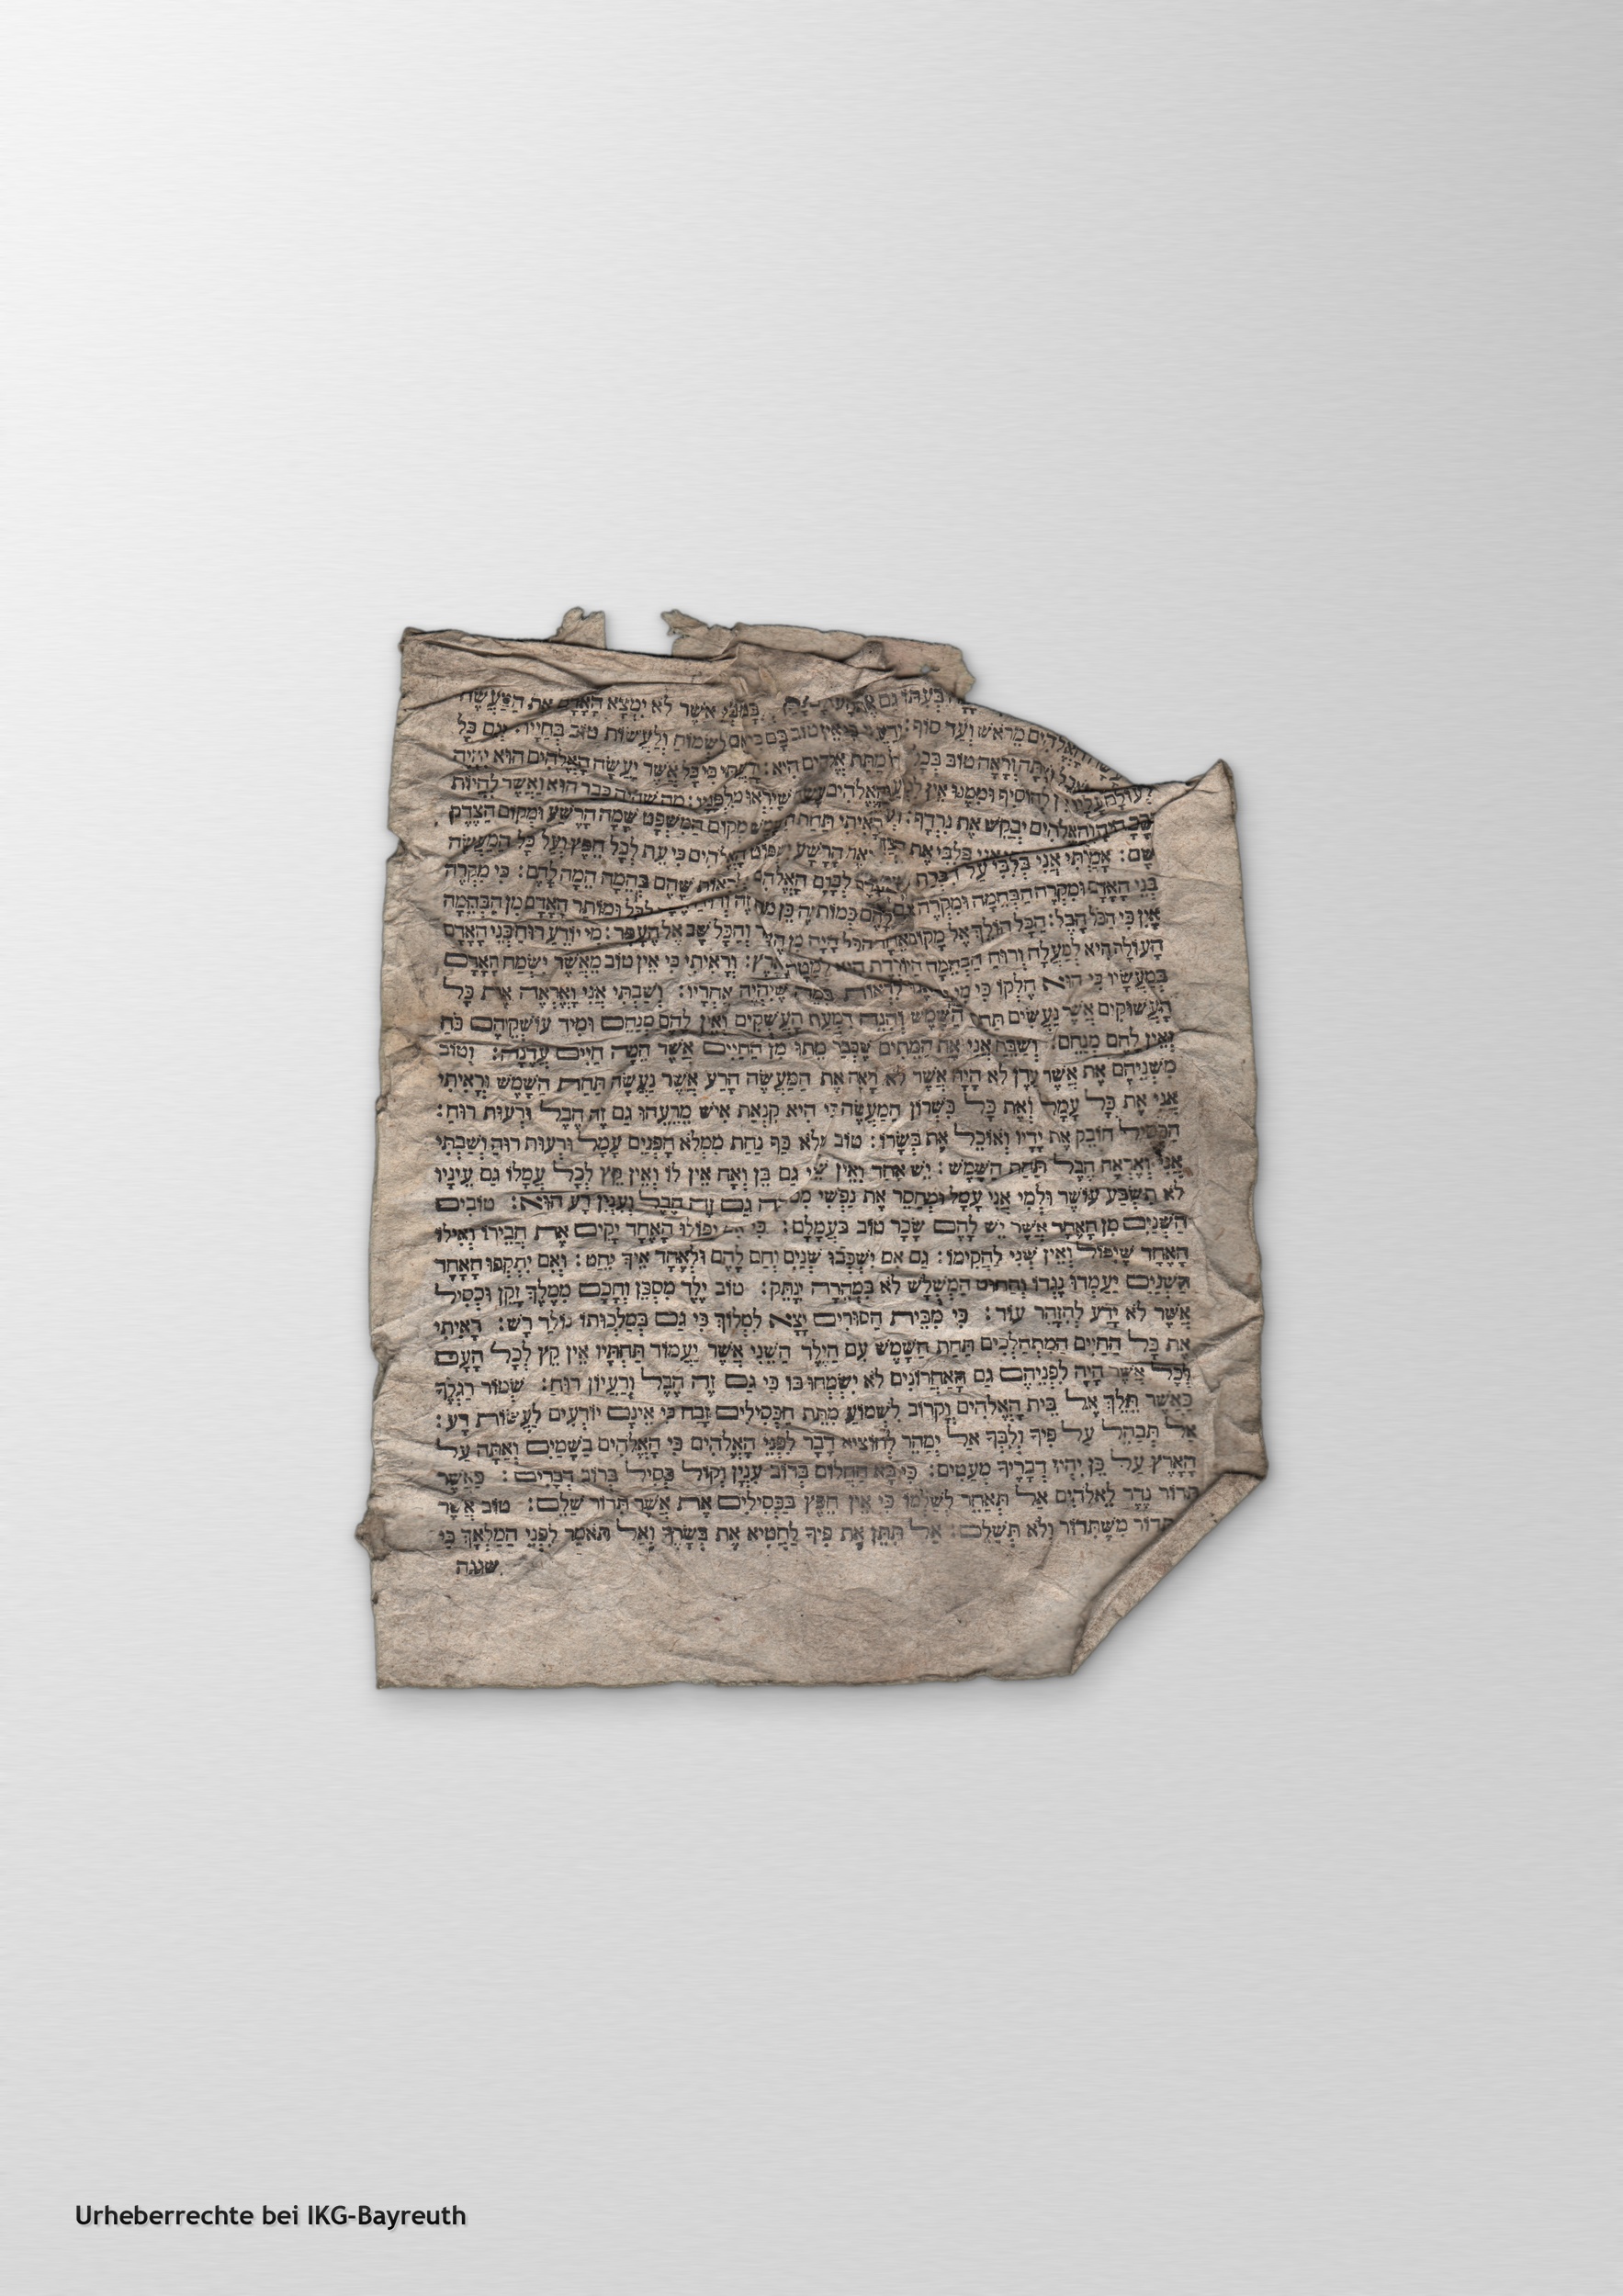 בְּעִתּוֹ גַם אשר לֹא יִמְצָא הָאָדָם אֶת הַמַּעֲשֶׂה
הָאֱלֹהִים מֵרֹאשׁ וְעַד סוֹף: טוֹב בָּם לִשְׂמוֹחַ וְלַעֲשׂוֹת טוֹב בְּחַיָּיו: וְגַם כָּל
וְרָאָה טוֹב בְּכָל מַתַּת אֱלֹהִים הִיא: יָדַעְתִּי כִּי כָּל אֲשֶׁר יַעֲשֶׂה הָאֱלֹהִים הוּא יִהְיֶה
לְהוֹסִיף וּמִמֶּנּוּ אֵין הָאֱלֹהִים עָשָׂה שֶׁיִּרְאוּ מִלְּפָנָיו: מַה שֶׁהָיָה כְּבָר הוּא וַאֲשֶׁר לִהְיוֹת
וְהָאֱלֹהִים יְבַקֵּשׁ אֶת נִרְדָּף: רָאִיתִי תַּחַת מְקוֹם הַמִּשְׁפָּט שָׁמָּה הָרֶשַׁע וּמְקוֹם הַצֶּדֶק
שָׁם: אָמַרְתִּי אֲנִי בְּלִבִּי אֶת הָרָשָׁע הָאֱלֹהִים כִּי עֵת לְכָל חֵפֶץ וְעַל כָּל הַמַּעֲשֶׂה
אֲנִי בְּלִבִּי עַל דִּבְרַת לְבָרָם הָאֱלֹהִים שֶׁהֵם בְּהֵמָה הֵמָּה לָהֶם: כִּי מִקְרֶה
בְּנֵי הָאָדָם וּמִקְרֶה הַבְּהֵמָה וּמִקְרֶה לָהֶם כְּמוֹת זֶה כֵּן זֶה לַכֹּל וּמוֹתַר הָאָדָם מִן הַבְּהֵמָה
אָיִן כִּי הַכֹּל הָבֶל: הַכֹּל הוֹלֵךְ אֶל מָקוֹם אֶחָד הַכֹּל הָיָה מִן וְהַכֹּל שָׁב אֶל הֶעָפָר: מִי יוֹדֵעַ רוּחַ בְּנֵי הָאָדָם
הָעוֹלָה הִיא לְמָעְלָה וְרוּחַ הַבְּהֵמָה הַיּוֹרֶדֶת הִיא לְמַטָּה לָאָרֶץ: וְרָאִיתִי כִּי אֵין טוֹב מֵאֲשֶׁר יִשְׂמַח הָאָדָם
בְּמַעֲשָׂיו כִּי הוּא חֶלְקוֹ כִּי מִי לִרְאוֹת בְּמֶה שֶׁיִּהְיֶה אַחֲרָיו: וְשַׁבְתִּי אֲנִי וָאֶרְאֶה אֶת כָּל
הָעֲשׁוּקִים אֲשֶׁר נַעֲשִׂים תַּחַת הַשָּׁמֶשׁ וְהִנֵּה דִּמְעַת הָעֲשֻׁקִים וְאֵין לָהֶם מְנַחֵם וּמִיַּד עוֹשְׁקֵיהֶם כֹּחַ
וְאֵין לָהֶם מְנַחֵם: וְשַׁבֵּחַ אֲנִי אֶת הַמֵּתִים שֶׁכְּבָר מֵתוּ מִן הַחַיִּים אֲשֶׁר הֵמָּה חַיִּים עֲדֶנָה: וְטוֹב
מִשְּׁנֵיהֶם אֶת אֲשֶׁר עֲדֶן לֹא הָיָה אֲשֶׁר לֹא רָאָה אֶת הַמַּעֲשֶׂה הָרַע אֲשֶׁר נַעֲשָׂה תַּחַת הַשָּׁמֶשׁ וְרָאִיתִי
אֲנִי אֶת כָּל עָמָל וְאֶת כָּל כִּשְׁרוֹן הַמַּעֲשֶׂה כִּי הִיא קִנְאַת אִישׁ מֵרֵעֵהוּ גַּם זֶה הֶבֶל וּרְעוּת רוּחַ:
הַכְּסִיל חוֹבֵק אֶת יָדָיו וְאוֹכֵל אֶת בְּשָׂרוֹ: טוֹב מְלֹא כַף נָחַת מִמְּלֹא חָפְנַיִם עָמָל וּרְעוּת רוּחַ וְשַׁבְתִּי
אֲנִי וָאֶרְאֶה הֶבֶל תַּחַת הַשָּׁמֶשׁ: יֵשׁ אֶחָד וְאֵין שֵׁנִי גַּם בֵּן וָאָח אֵין לוֹ וְאֵין קֵץ לְכָל עֲמָלוֹ גַּם עֵינָיו
לֹא תִשְׂבַּע עוֹשֶׁר וּלְמִי אֲנִי עָמֵל וּמְחַסֵּר אֶת נַפְשִׁי גַּם זֶה הֶבֶל וְעִנְיַן רָע הוּא: טוֹבִים
הַשְּׁנַיִם מִן הָאֶחָד אֲשֶׁר יֵשׁ לָהֶם שָׂכָר טוֹב בַּעֲמָלָם: כִּי אִם יִפּוֹלוּ הָאֶחָד יָקִים אֶת חֲבֵירוֹ וְאִילוֹ
הָאֶחָד שֶׁיִּפּוֹל וְאֵין שֵׁנִי לַהֲקִימוֹ: גַּם אִם יִשְׁכְּבוּ שְׁנַיִם וְחַם לָהֶם וּלְאֶחָד אֵיךְ יֵחָט: וְאִם יִתְקְפוּ הָאֶחָד
הַשְּׁנַיִם יַעַמְדוּ נֶגְדּוֹ וְהַחוּט הַמְשֻׁלָּשׁ לֹא בִמְהֵרָה יִנָּתֵק: טוֹב יֶלֶד מִסְכֵּן וְחָכָם מִמֶּלֶךְ זָקֵן וּכְסִיל
אֲשֶׁר לֹא יָדַע לְהִזָּהֵר עוֹד: כִּי מִבֵּית הַסּוּרִים יָצָא לִמְלוֹךְ כִּי גַּם בְּמַלְכוּתוֹ נוֹלַד רָשׁ: רָאִיתִי
אֶת כָּל הַחַיִּים הַמִּתְהַלְּכִים תַּחַת הַשָּׁמֶשׁ עִם הַיֶּלֶד הַשֵּׁנִי אֲשֶׁר יַעֲמוֹד תַּחְתָּיו אֵין קֵץ לְכָל הָעָם
וּלְכָל אֲשֶׁר הָיָה לִפְנֵיהֶם גַּם הָאַחֲרוֹנִים לֹא יִשְׂמְחוּ בוֹ כִּי גַּם זֶה הֶבֶל וְרַעְיוֹן רוּחַ: שְׁמוֹר רַגְלְךָ
כַּאֲשֶׁר תֵּלֵךְ אֶל בֵּית הָאֱלֹהִים וְקָרוֹב לִשְׁמוֹעַ מִתֵּת הַכְּסִילִים זָבַח כִּי אֵינָם יוֹדְעִים לַעֲשׂוֹת רָע:
אַל תְּבַהֵל עַל פִּיךָ וְלִבְּךָ אַל יְמַהֵר לְהוֹצִיא דָבָר לִפְנֵי הָאֱלֹהִים כִּי הָאֱלֹהִים בַּשָּׁמַיִם וְאַתָּה עַל
הָאָרֶץ עַל כֵּן יִהְיוּ דְבָרֶיךָ מְעַטִּים: כִּי בָּא הַחֲלוֹם בְּרוֹב עִנְיָן וְקוֹל כְּסִיל בְּרוֹב דְּבָרִים: כַּאֲשֶׁר
תִּדּוֹר נֶדֶר לֵאלֹהִים אַל תְּאַחֵר לְשַׁלְּמוֹ כִּי אֵין חֵפֶץ בַּכְּסִילִים אֶת אֲשֶׁר תִּדּוֹר שַׁלֵּם: טוֹב אֲשֶׁר
תִדּוֹר מִשֶּׁתִּדּוֹר וְלֹא תְשַׁלֵּם: אַל תִּתֵּן אֶת פִּיךָ לַחֲטִיא אֶת בְּשָׂרֶךָ וְאַל תֹּאמַר לִפְנֵי הַמַּלְאָךְ כִּי
שגגה
Urheberrechte bei IKG-Bayreuth